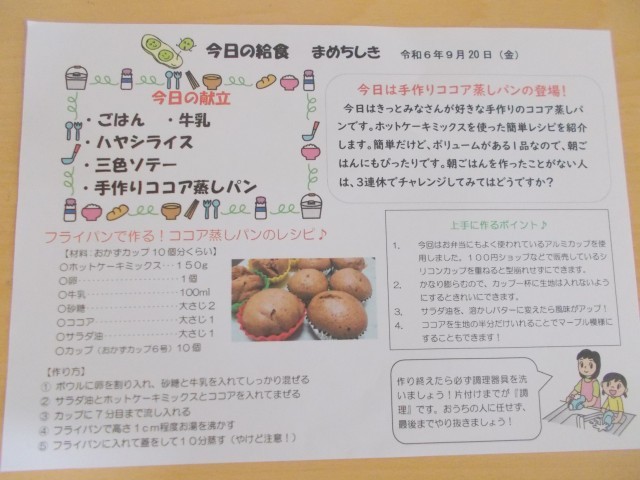 今日の給食　まめちしき　令和６年９月20日（金）
今日の献立
・ごはん　・牛乳
・ハヤシライス
・三色ソテー
・手作りココア蒸しパン
今日は手作りココア蒸しパンの登場！
今日はきっとみなさんが好きな手作りのココア蒸しパ
ンです。ホットケーキミックスを使った簡単レシピを紹介
します。簡単だけど、ボリュームがある１品なので、朝ご
はんにもぴったりです。朝ごはんを作ったことがない人
は、３連休でチャレンジしてみてはどうですか？
フライパンで作る！ココア蒸しパンのレシピ♪
【材料：おかずカップ10個分くらい】
○ホットケーキミックス・・・１５０ｇ
○卵・・・・・・・・・・・・・１個
○牛乳・・・・・・・・・・・100ml
○砂糖・・・・・・・・・・・大さじ２
○ココア・・・・・・・・・・大さじ１
○サラダ油・・・・・・・・・大さじ１
○カップ（おかずカップ６号）１０個
【作り方】
① ボウルに卵を割り入れ、砂糖と牛乳を入れてしっかり混ぜる
② サラダ油とホットケーキミックスとココアを入れてまぜる
③ カップに７分目まで流し入れる
④ フライパンで高さ１ｃｍ程度お湯を沸かす
⑤ フライパンに入れて蓋をして１０分蒸す（やけど注意！）
上手に作るポイント♪
1. 今回はお弁当にもよく使われているアルミカップを使
用しました。１００円ショップなどで販売しているシ
リコンカップを重ねると型崩れせずにできます。
2. かなり膨らむので、カップ一杯に生地は入れないよう
にするときれいにできます。
3. サラダ油を、溶かしバターに変えたら風味がアップ！
4. ココアを生地の半分だけいれることでマーブル模様に
することもできます！
作り終えたら必ず調理器具を洗
いましょう！片付けまでが『調
理』です。おうちの人に任せず、
最後までやり抜きましょう！